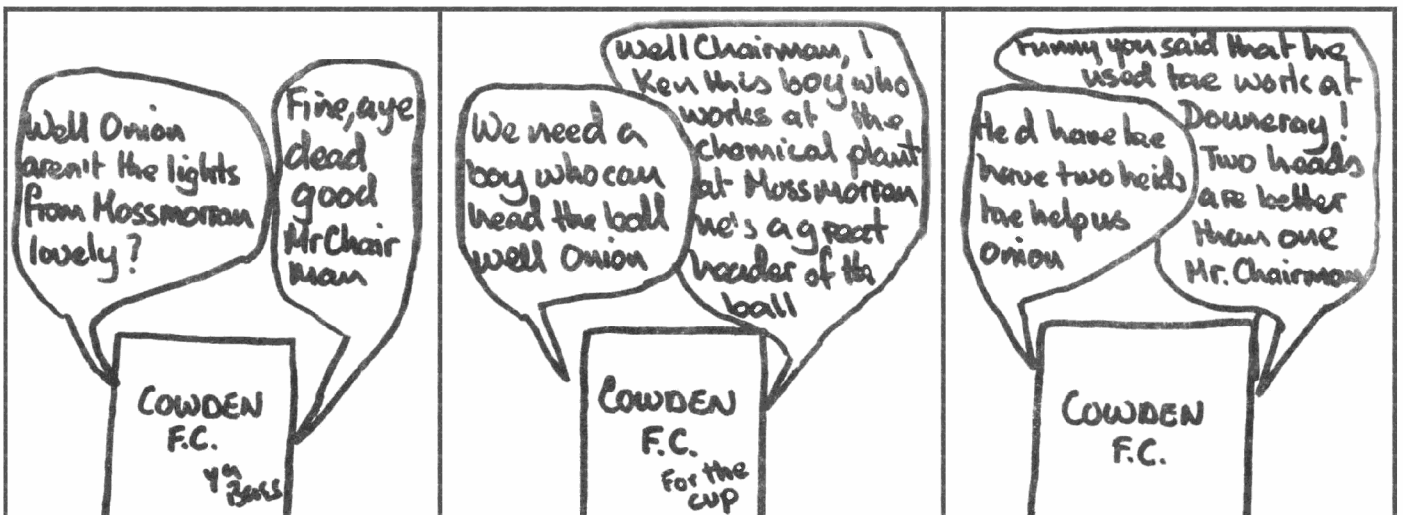 Well Onion
aren't the lights
from Mossmorran
lovely?
Fine, aye
dead
good
Mr Chair
man
COWDEN
F.C.
ya
Beass
We need a
boy who can
head the ball
well Onion
Well Chairman, I
Ken this boy who
works at the
chemical plant
at Mossmorran
he's a great
header of the
ball
COWDEN
F.C.
For the
cup
He'd have tae
have two heids
tae help us
Onion
Funny you said that he
used tae work at
Douneray!
Two heads
are better
than one
Mr. Chairman
COWDEN
F.C.